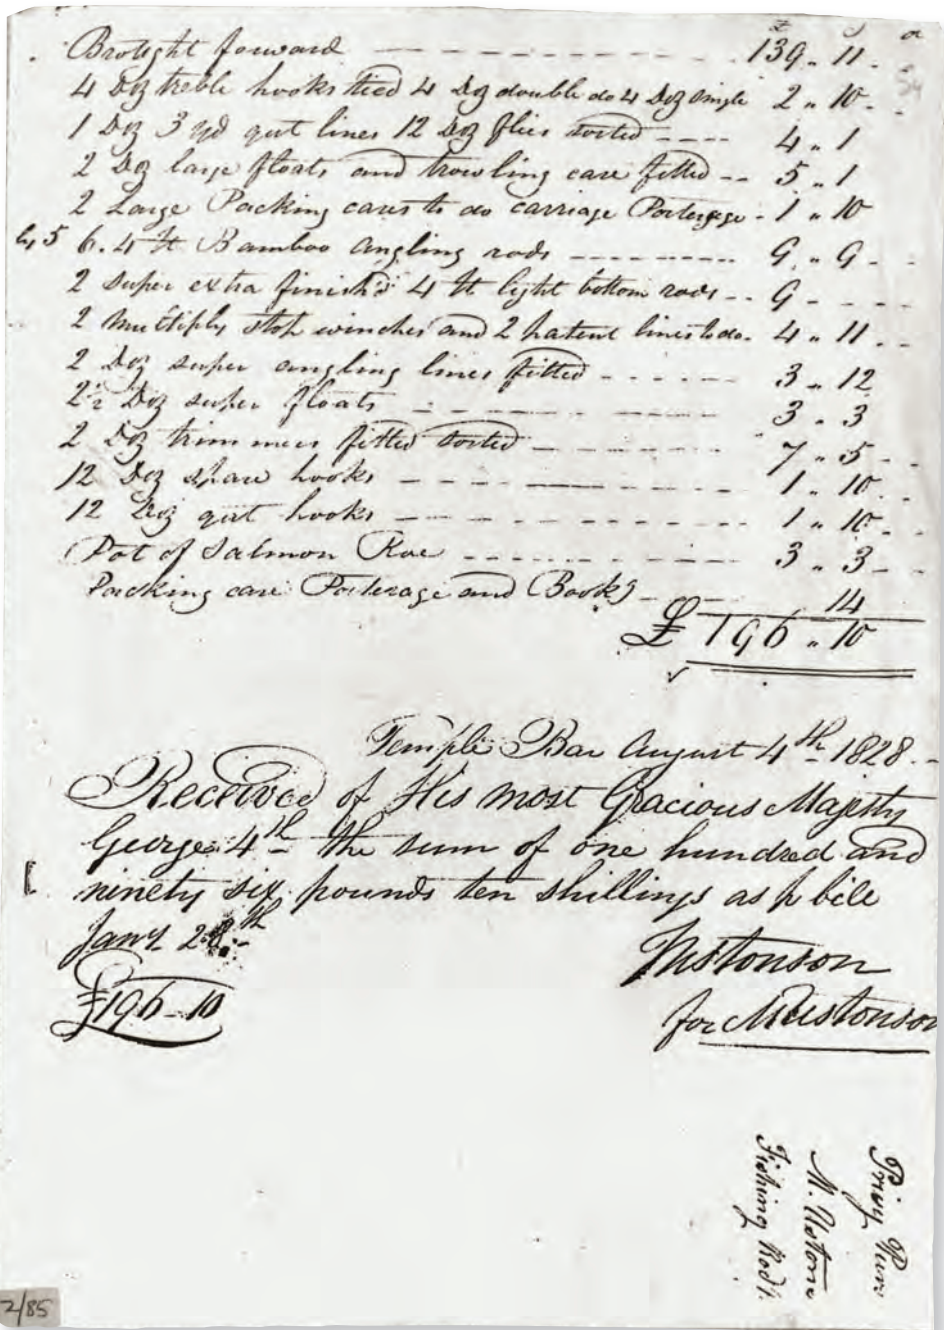 £ s d
Brought forward 139 " 11
4 Doz treble hooks tied 4 Doz double do 4 Doz single 2 " 10
1 Doz 3 yd gut lines 12 Doz flies sorted 4 " 1
2 Doz large floats and trowling case fitted 5 " 1
2 Large Packing cases to do carriage Porterage 1 " 10
5 6. 4 ft Bamboo angling rods 9 " 9
2 super extra finish'd 4 ft light bottom rods 9
2 Multiply stop winches and 2 patent lines to do. 4 " 11
2 Doz super angling lines fitted 3 " 12
2½ Doz super floats 3 " 3
2 Doz trimmers fitted sorted 7 " 5
12 Doz spare hooks 1 " 10
12 Doz gut hooks 1 " 10
Pot of Salmon Roe 3 " 3
Packing case Porterage and Books 14
£ 196 " 10
Temple Bar August 4th 1828
Received of His most Gracious Majesty
George 4th the sum of one hundred and
ninety six pounds ten shillings as p bill
Jany
£196 - 10
Ustonson
for M Ustonson
Privy Purse
M. Ustons
Fishing Rods.
2/85